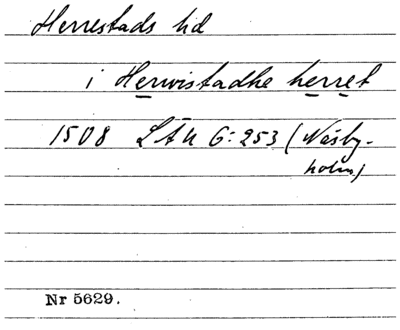 Herrestads hd
i Herwistadhe herret
1508 LÄU G: 253 (Näsby-
holm)
Nr 5629.